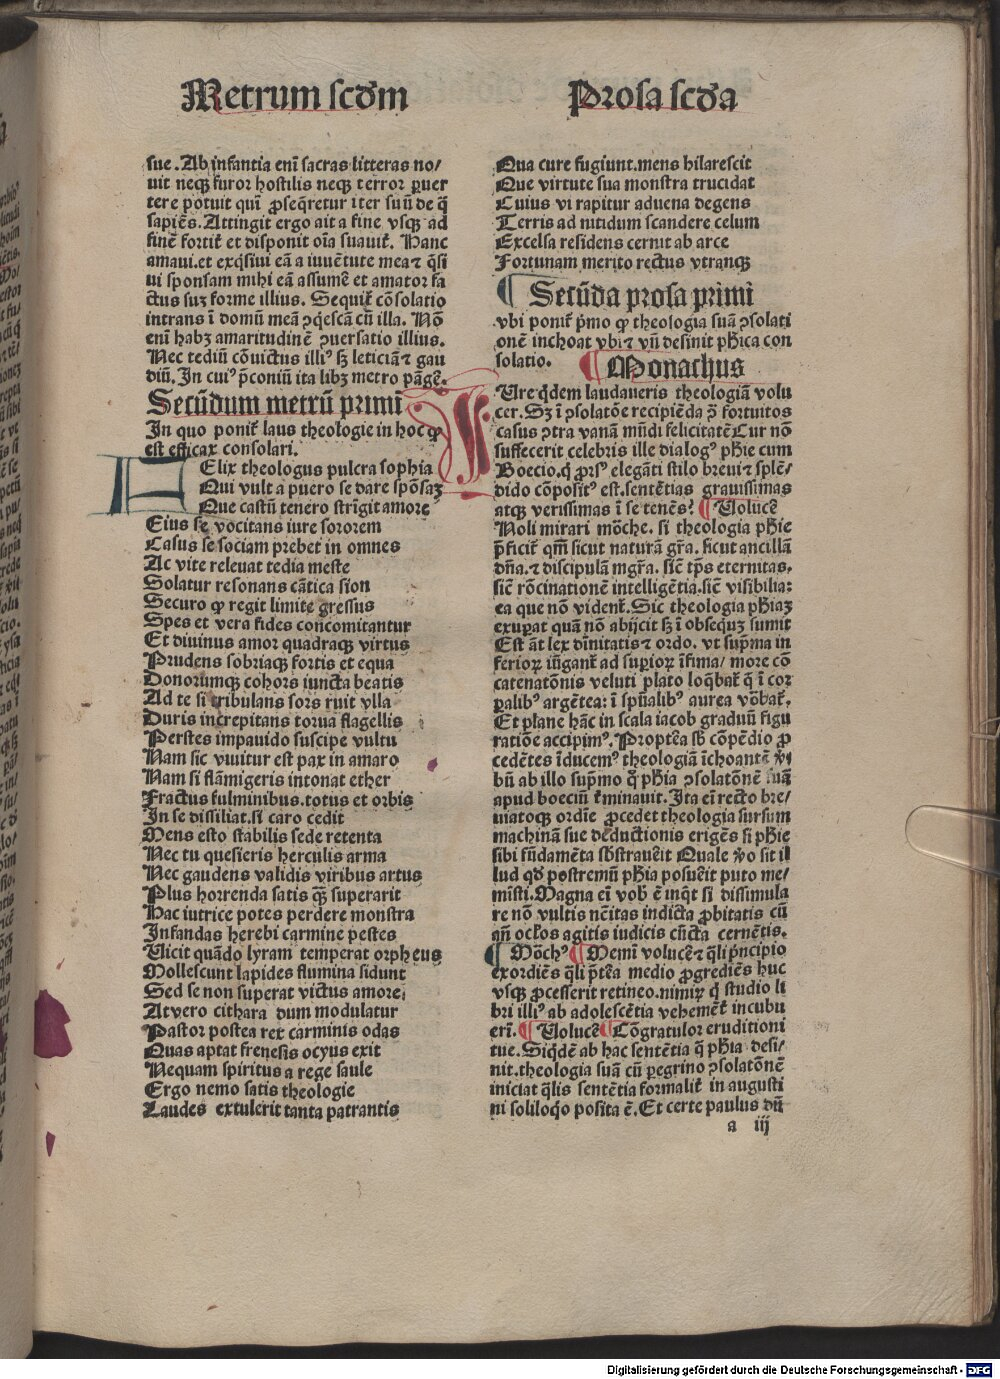 Metrum scdm
Prosa scda
sue. Ab infantia eni sacras litteras no/
uit neqȝ furor hostilis neqȝ terror ꝑuer
tere potuit quī ꝓseq̄retur iter suū de q̄
sapiēs. Attingit ergo ait a fine vsqȝ ad
finē fortit̄ et disponit oīa suauit̄. Hanc
amaui. et exq̄siui eā a iuuētute mea ⁊ q̄si
ui sponsam mihi eā assumē et amator fa
ctus suȝ forme illius. Sequit̄ cōsolatio
intrans ī domū meā ꝯq̄escā cū illa. Nō
enī habȝ amaritudinē ꝯuersatio illius.
Nec tediū cōuictus illi⁹ sȝ leticiā ⁊ gau
diū. In cui⁹ p̄coniū ita libȝ metro pāge.
Secūdum metrū primi
In quo ponit̄ laus theologie in hoc ꝙ
est efficax consolari.
Elix theologus pulcra sophia
Qui vult a puero se dare spōsaȝ
Que castū tenero strīgit amore
Eius se vocitans iure sororem
Casus se sociam prebet in omnes
Ac vite releuat tedia meste
Solatur resonans cātica sion
Securo ꝙ regit limite gressus
Spes et vera fides concomitantur
Et diuinus amor quadraqȝ virtus
Prudens sobriaqȝ fortis et equa
Donorumqȝ cohors iuncta beatis
Ad te si tribulans sors ruit vlla
Duris increpitans torua flagellis
Perstes impauido suscipe vultu
Nam sic viuitur est pax in amaro
Nam si flāmigeris intonat ether
Fractus fulminibus. totus et orbis
In se dissiliat. si caro cedit
Mens esto stabilis sede retenta
Nec tu quesieris herculis arma
Nec gaudens validis viribus artus
Plus horrenda satis qȝ̄ superarit
Hac iutrice potes perdere monstra
Infandas herebi carmine pestes
Uicit quādo lyram temperat orpheus
Mollescunt lapides flumina sidunt
Sed se non superat victus amore
At vero cithara dum modulatur
Pastor postea rex carminis odas
Quas aptat frenesis ocyus exit
Nequam spiritus a rege saule
Ergo nemo satis theologie
Laudes extulerit tanta patrantis
Qua cure fugiunt. mens hilarescit
Que virtute sua monstra trucidat
Cuius vi rapitur aduena degens
Terris ad nitidum scandere celum
Excelsa residens cernit ab arce
Fortunam merito rectus vtranqȝ
¶ Secūda prosa primi
vbi ponit̄ pͥmo ꝙ theologia suā ꝯsolati
onē inchoat vbi ⁊ vn̄ desinit ph̄ica con
solatio. ¶ Monachus
Ure q̄dem laudaueris theologiā volu
cer. Sȝ ī ꝯsolatōe recipiēda ꝯ̄ fortuitos
casus ꝯtra vanā mūdi felicitatē Cur nō
suffecerit celebris ille dialog⁹ ph̄ie cum
Boecio. q̄ ꝓrs⁹ elegāti stilo breui ⁊ splē/
dido cōposit⁹ est. sentētias grauissimas
atqȝ verissimas ī se tenēs? ¶ Uolucē
Noli mirari mōche. si theologia ph̄ie
p̄ficit̄ qm̄ sicut naturā gr̄a. sicut ancillā
dn̄a. ⁊ discipulā mgr̄a. sic̄ tp̄s eternitas.
sic̄ rōcinationē intelligētia. sic̄ visibilia:
ea que nō vident̄. Sic theologia ph̄iaȝ
exuꝑat quā nō abijcit sȝ ī obsequȝ sumit
Est āt lex diuinitatis ⁊ ordo. vt supͥma in
ferioꝝ iūgant̄ ad supioꝝ īfima/ more cō
catenatōnis veluti plato loq̄bat̄ q̄ ī cor
ꝑalib⁹ argētea: ī spūalib⁹ aurea vōbat̄.
Et plane hāc in scala iacob graduū figu
ratiōe accipim⁹. Proptēa sb̄ cōpēdio ꝓ
cedētes īducem⁹ theologiā īchoantē
bū ab illo supͥmo q̄ ph̄ia ꝯsolatōnē suā
apud boeciū t̄minauit. Ita eī recto bre/
uiatoqȝ ordīe ꝓcedet theologia sursum
machinā sue deductionis erigēs si ph̄ie
sibi fūdamēta sb̄strauerit Quale v̄o sit il
lud qd̄ postremū ph̄ia posuerit puto me/
mīsti. Magna eī vob̄ ē inq̄t si dissimula
re nō vultis nēitas indicta ꝓbitatis cū
an̄ oc̄los agitis iudicis cūcta cernētis.
¶ Mōch⁹ ¶ Memī volucē ⁊ q̄li pͥncipio
exordiēs q̄li pͥtēa medio ꝓgrediēs huc
vsqȝ ꝓcesserit retineo. nimiꝝ q̄ studio li
bri illi⁹ ab adolescētia vehemēt̄ incubu
erī. ¶ Uolucē ¶ Cōgratulor eruditioni
tue. Siq̄dē ab hac sentētia q̄ ph̄ia desi/
nit. theologia suā cū ꝑegrino ꝯsolatōnē
iniciat q̄lis sentētia formalit̄ in augusti
ni soliloq̄o posita ē. Et certe paulus dū
a iij
Digitalisierung gefördert durch die Deutsche Forschungsgemeinschaft - DFG